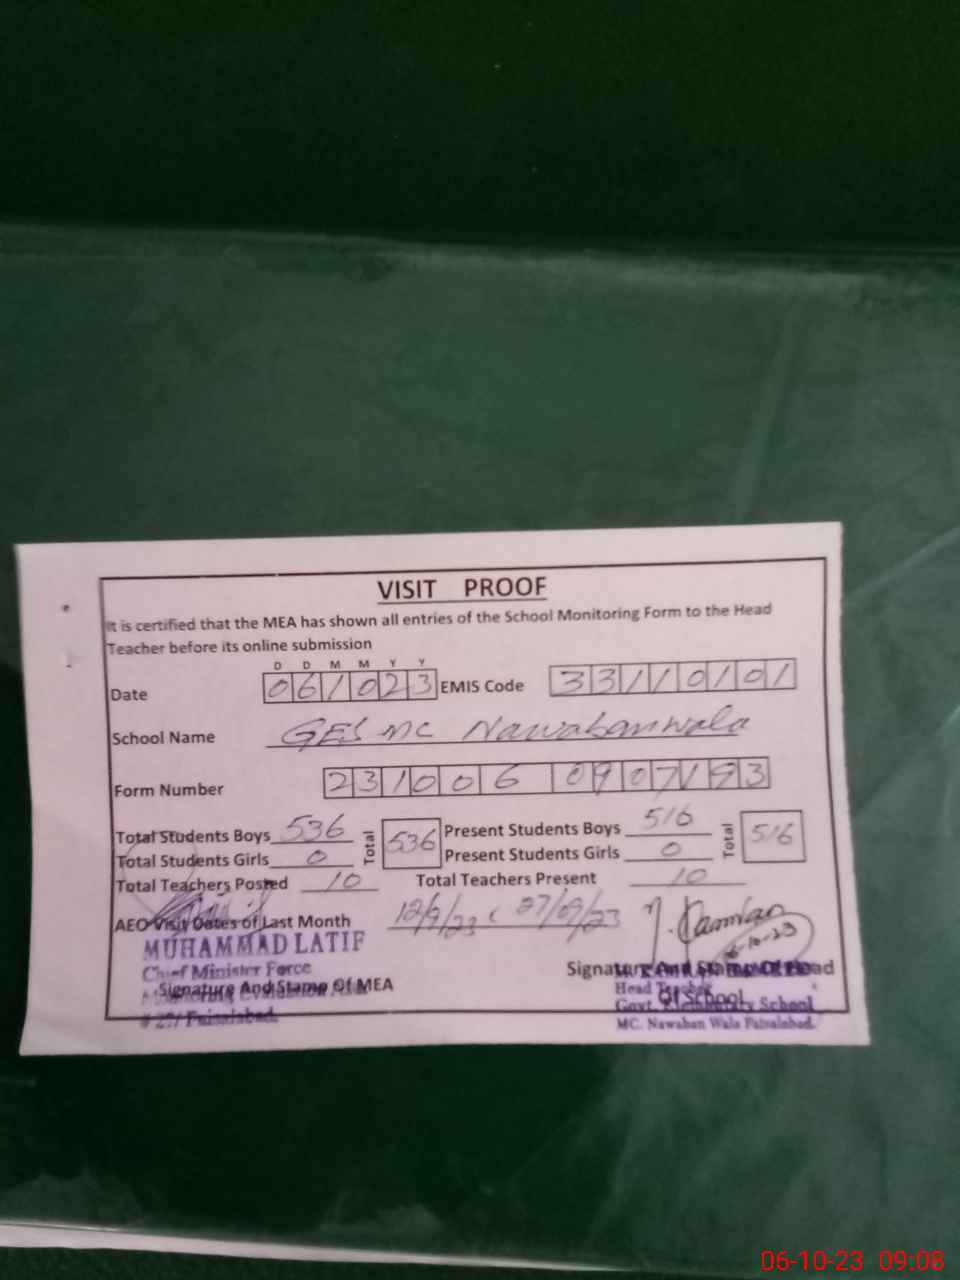 VISIT PROOF
It is certified that the MEA has shown all entries of the School Monitoring Form to the Head
Teacher before its online submission
D D M M Y Y
Date 061023 EMIS Code 33110101
School Name GES MC Nawabanwala
Form Number 231006 0907193
Total Students Boys 536 Total 536 Present Students Boys 516 Total 516
Total Students Girls 0 Present Students Girls 0
Total Teachers Posted 10 Total Teachers Present 10
AEO Visit Dates of Last Month 12/9/23 27/09/23
6-10-23
MUHAMMAD LATIF
Chief Minister Force
Signature And Stamp Of MEA
Faisalabad.
Signature And Stamp Of Head
Of School
Head Teacher
Govt. Elementary School
MC. Nawaban Wala Faisalabad.
06-10-23 09:08